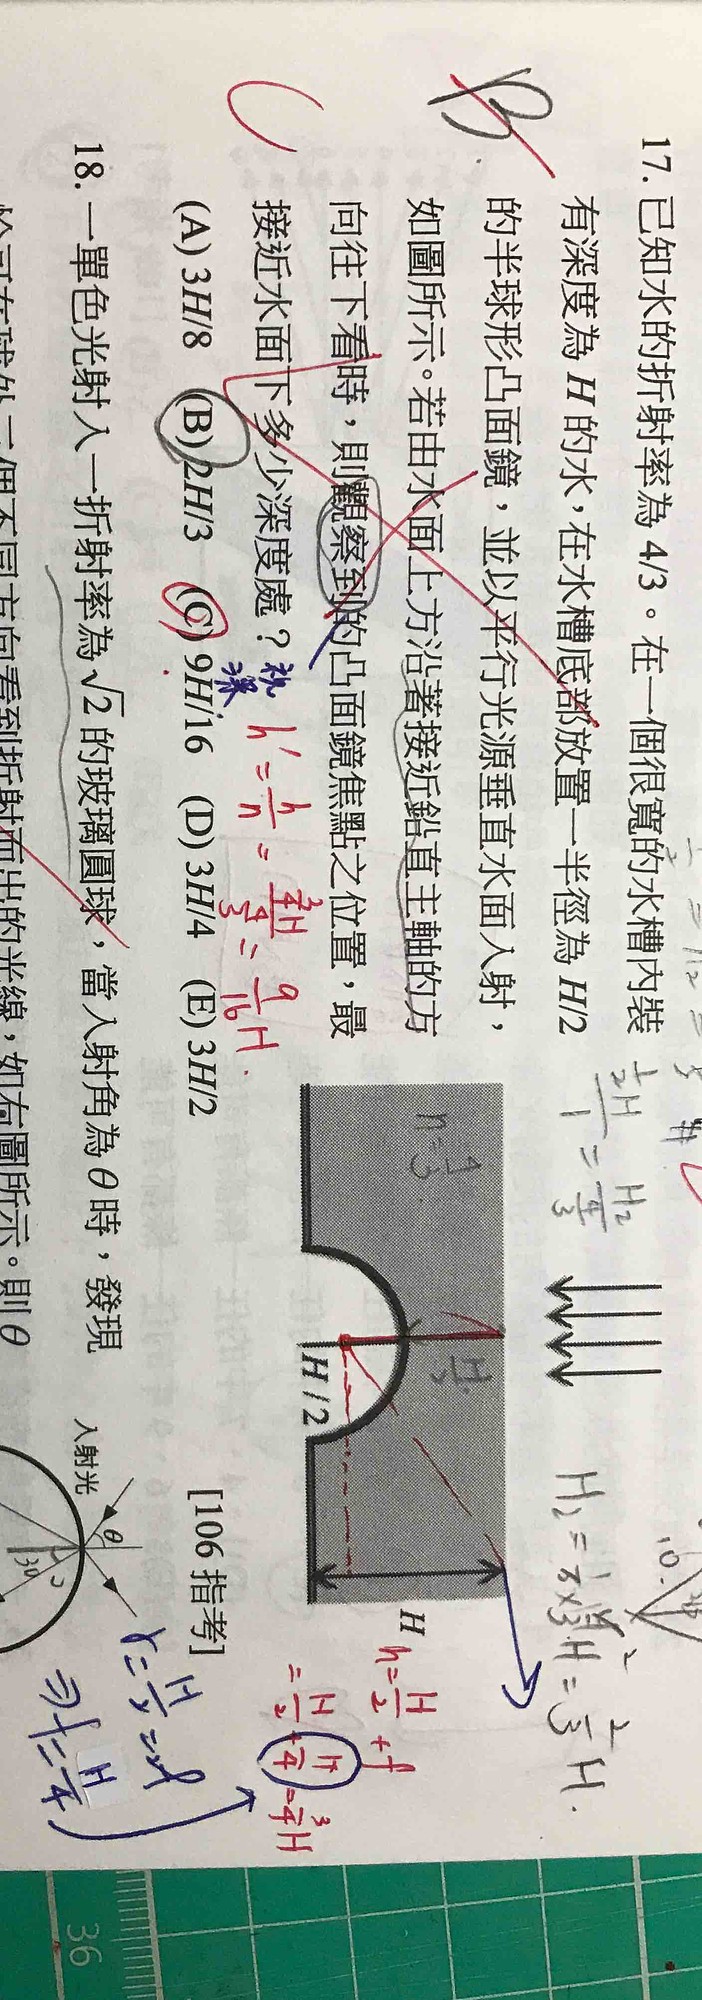 17. 已知水的折射率為 4/3。在一個很寬的水槽內裝
有深度為 H 的水，在水槽底部放置一半徑為 H/2
的半球形凸面鏡，並以平行光源垂直水面入射，
如圖所示。若由水面上方沿著接近鉛直主軸的方
向往下看時，則觀察到的凸面鏡焦點之位置，最
接近水面下多少深度處？
(A) 3H/8 (B) 2H/3 (C) 9H/16 (D) 3H/4 (E) 3H/2
[106 指考]
B
C
視深
h' = h/n = 3/4H / 4/3 = 9/16 H.
n = 4/3
H/2
H
1/2H / 1 = H₂ / 4/3
h = H/2 + f
= H/2 + H/4 = 3/4 H
r = H/2 = 2f
⇒ f = H/4
18. 一單色光射入一折射率為√2的玻璃圓球，當入射角為 θ 時，發現
入射光
θ
30
36